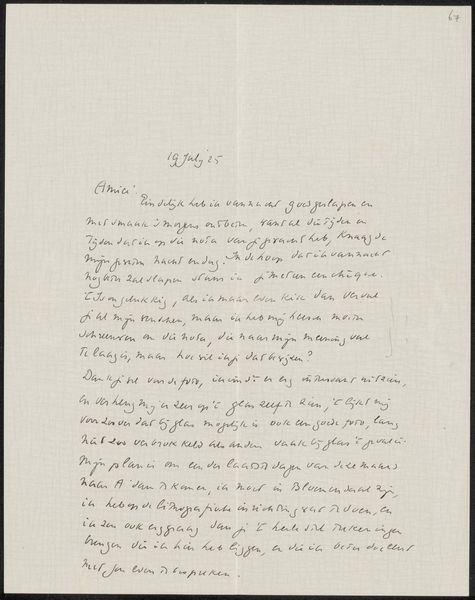 67
19 July 25
Amice!
Eindelijk heb ik vannacht goed geslapen en
met smaak 's morgens ontbeten, want al die tijden en
tijden dat ik op die nota van je gewacht heb, knaagde
mijn nacht en dag. In de hoop dat ik vannacht
nog beter zal slapen stuur ik je meteen een chèque.
't Is ongelukkig, als ik maar even kik dan vervul
je al mijn wenschen, maar ik heb mij heesch moeten
schreeuwen om die nota, die naar mijn meening veel
te laag is, maar hoe wil ik je dat bewijzen?
Dank je wel voor de foto, ik vind 't er erg interessant uitzien,
en verheug mij er zeer op 't glas zelf te zien, 't lijkt mij
voor zoover dat bij glas mogelijk is ook een goede foto, lang
niet zoo verbrokkeld als anders vaak bij glas 't geval is.
Mijn plan is om een der laatste dagen van deze maand
naar A'dam te komen, ik moet in Bloemendaal zijn,
ik heb op de lithografische inrichting wat te doen, en
ik zou ook erg graag dan je 't heele stel teekeningen
brengen die ik hier heb liggen, en die ik beter doe eerst
met jou even te bespreken.